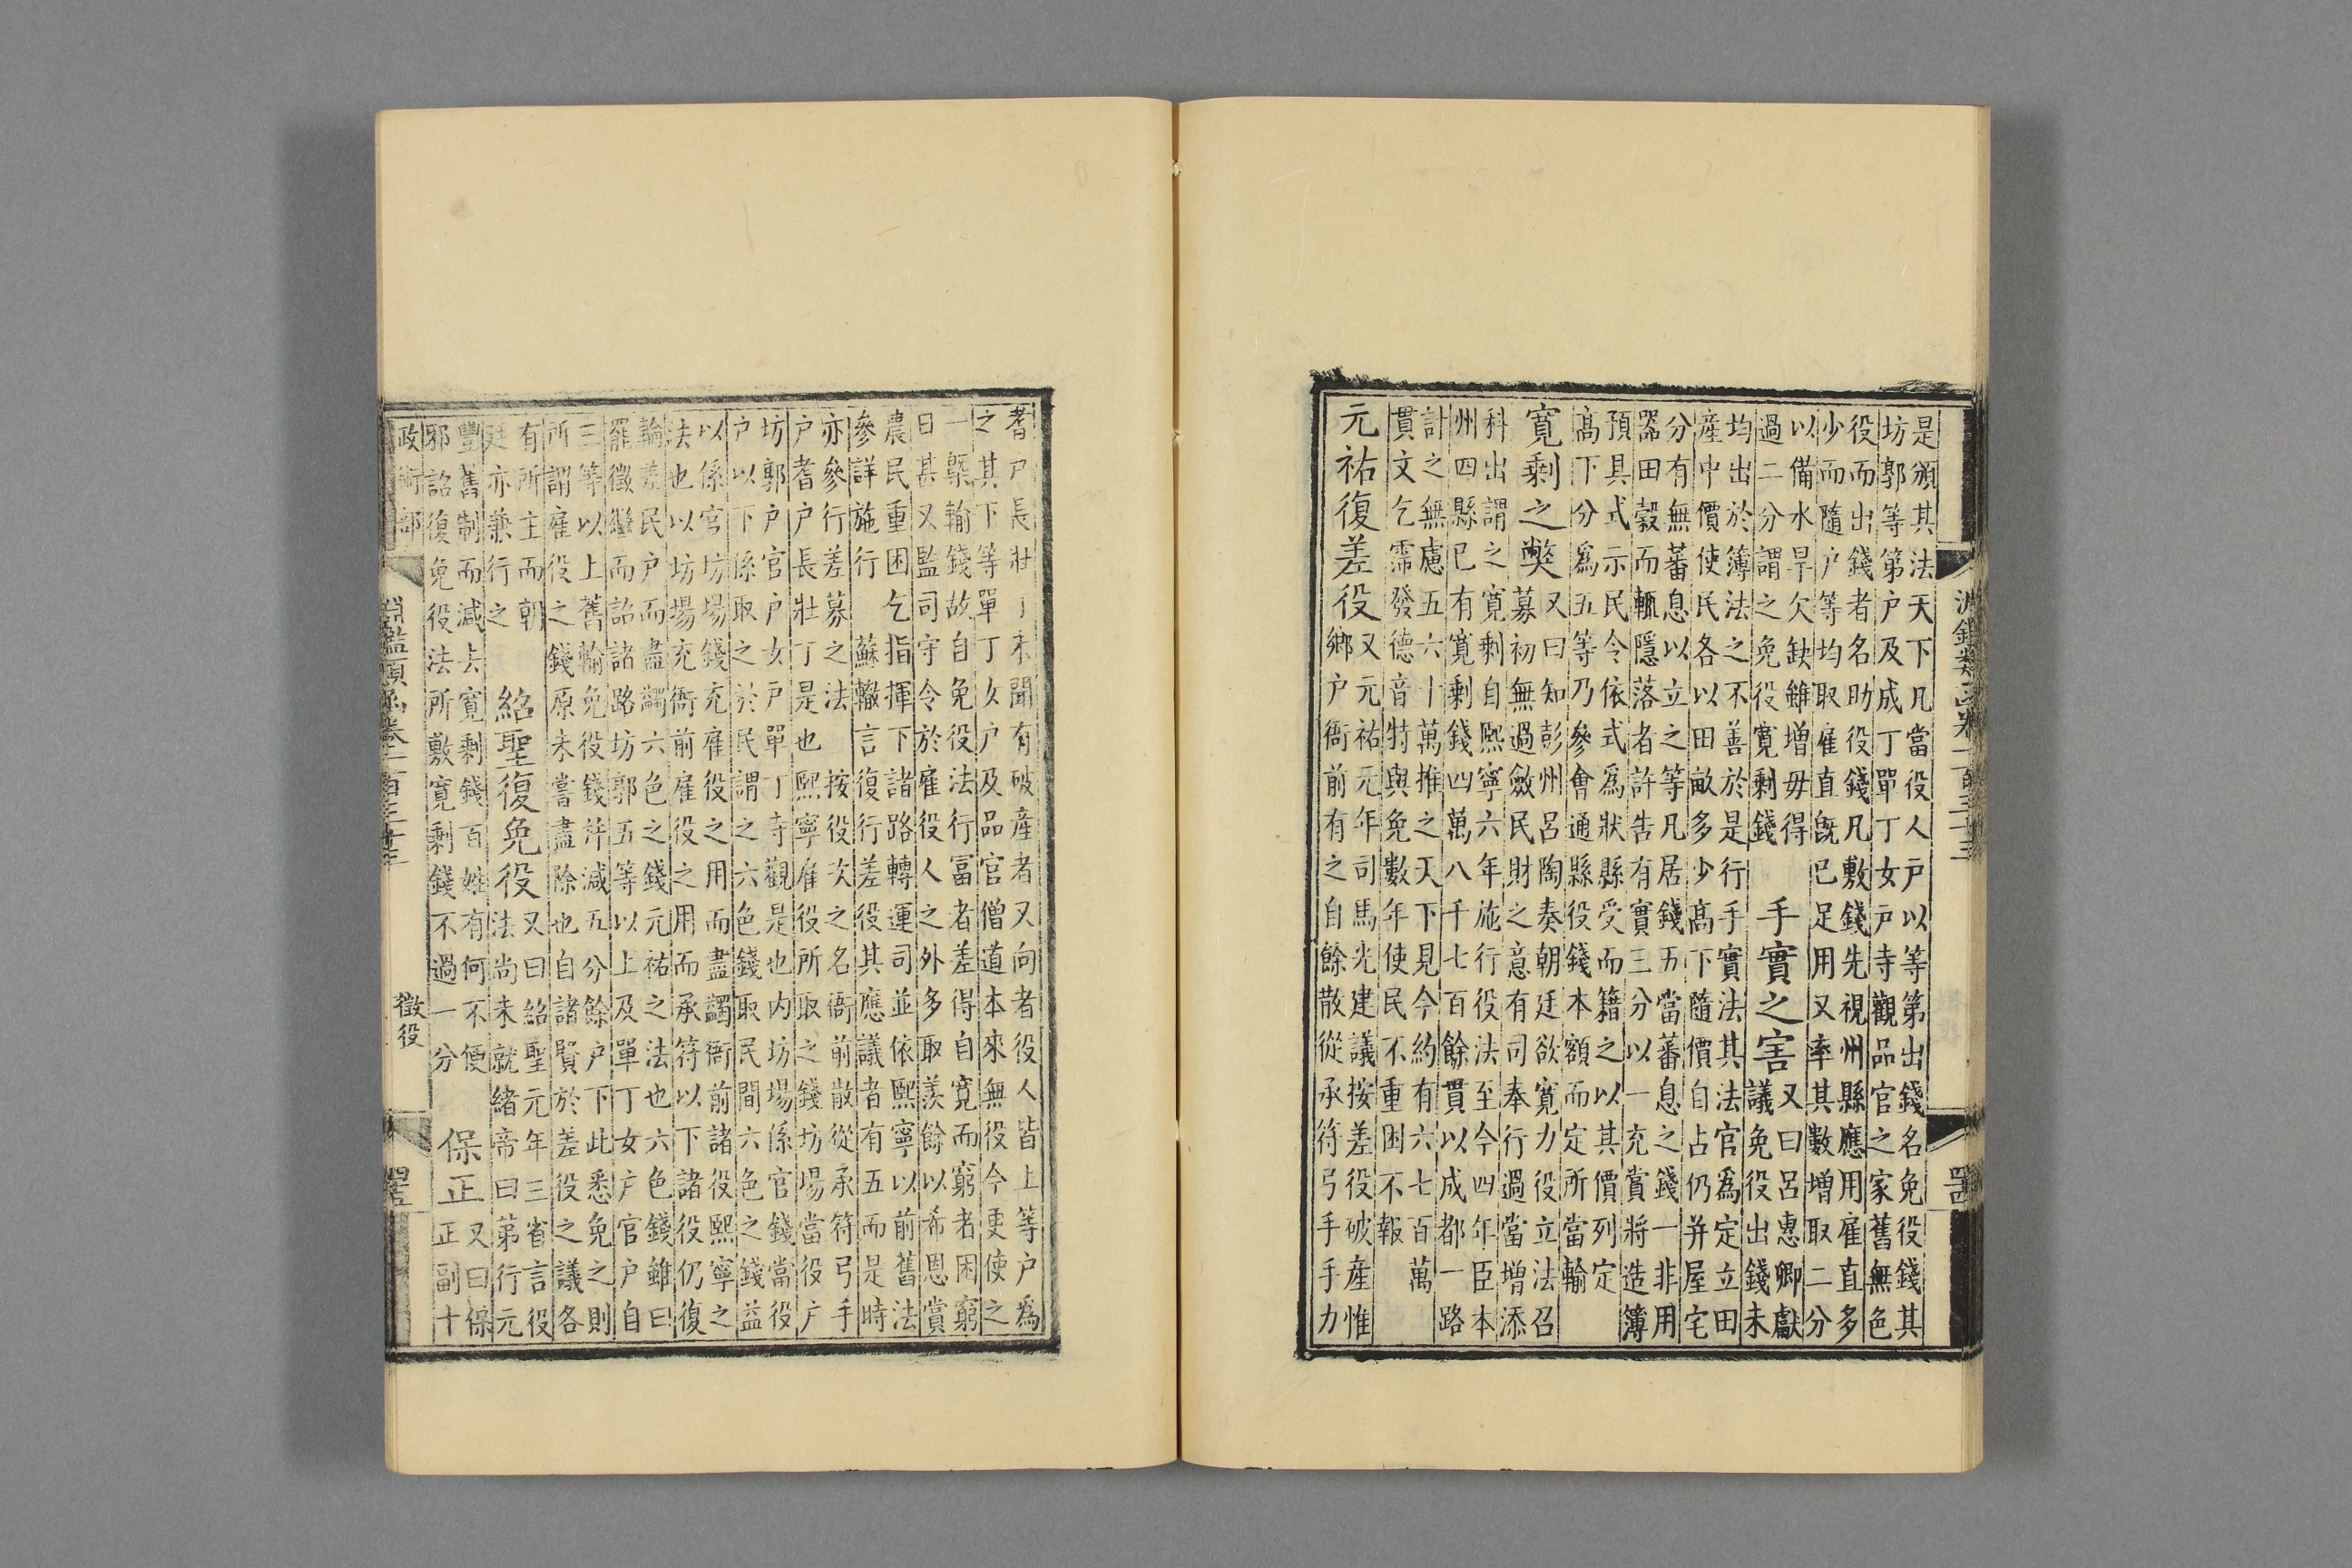 淵鑑類函卷一百三十三
四
是頒其法天下凡當役人户以等第出錢名免役錢其
坊郭等第户及成丁單丁女户寺觀品官之家舊無色
役而出錢者名助役錢凡敷錢先視州縣應用雇直多
少而隨户等均取雇直旣已足用又率其數增取二分
以備水旱欠缺雖增毋得
過二分謂之免役寛剩錢
手實之害
又曰呂惠卿獻
議免役出錢未
均出於簿法之不善於是行手實法其法官爲定立田
産中價使民各以田畝多少髙下隨價自占仍并屋宅
分有無蕃息以立之等凡居錢五當蕃息之錢一非用
器田穀而輒隱落者許告有實三分以一充賞將造簿
預具式示民令依式爲狀縣受而籍之以其價列定
髙下分爲五等乃參會通縣役錢本額而定所當輸
寛剩之獘
又曰知彭州呂陶奏朝廷欲寛力役立法召
募初無過斂民財之意有司奉行過當增添
科出謂之寛剩自熙寧六年施行役法至今四年臣本
州四縣已有寛剩錢四萬八千七百餘貫以成都一路
計之無慮五六十萬推之天下見今約有六七百萬
貫文乞霈發德音特與免數年使民不重困不報
元祐復差役
又元祐元年司馬光建議按差役破産惟
鄉户衙前有之自餘散從承符弓手手力
耆户長壯丁未聞有破産者又向者役人皆上等户爲
之其下等單丁女户及品官僧道本來無役今更使之
一槩輸錢故自免役法行富者差得自寛而窮者困窮
日甚又監司守令於雇役人之外多取羨餘以希恩賞
農民重困乞指揮下諸路轉運司並依熙寧以前舊法
參詳施行
蘇轍言復行差役其應議者有五而是時
亦參行差募之法
按役次之名衙前散從承符弓手
户耆户長壯丁是也
熙寧雇役所取之錢坊場當役户
坊郭户官户女户單丁寺觀是也内坊場係官錢當役
户以下係取之於民謂之六色錢取民間六色之錢益
以係官坊場錢充雇役之用而盡蠲衙前諸役熙寧之
法也以坊場充衙前雇役之用而承符以下諸役仍復
輪差民户而盡蠲六色之錢元祐之法也六色錢雖曰
罷徵繼而詔諸路坊郭五等以上及單丁女户官户自
三等以上舊輸免役錢幷減五分餘户下此悉免之則
所謂雇役之錢原未嘗盡除也自諸賢於差役之議各
有所主而朝
廷亦兼行之
紹聖復免役
又曰紹聖元年三省言役
法尚未就緒帝曰第行元
豐舊制而減去寛剩錢百姓有何不便
邪詔復免役法所敷寛剩錢不過一分
保正
又曰保
正副十
政術部
淵鑑類函卷一百三十三
徵役